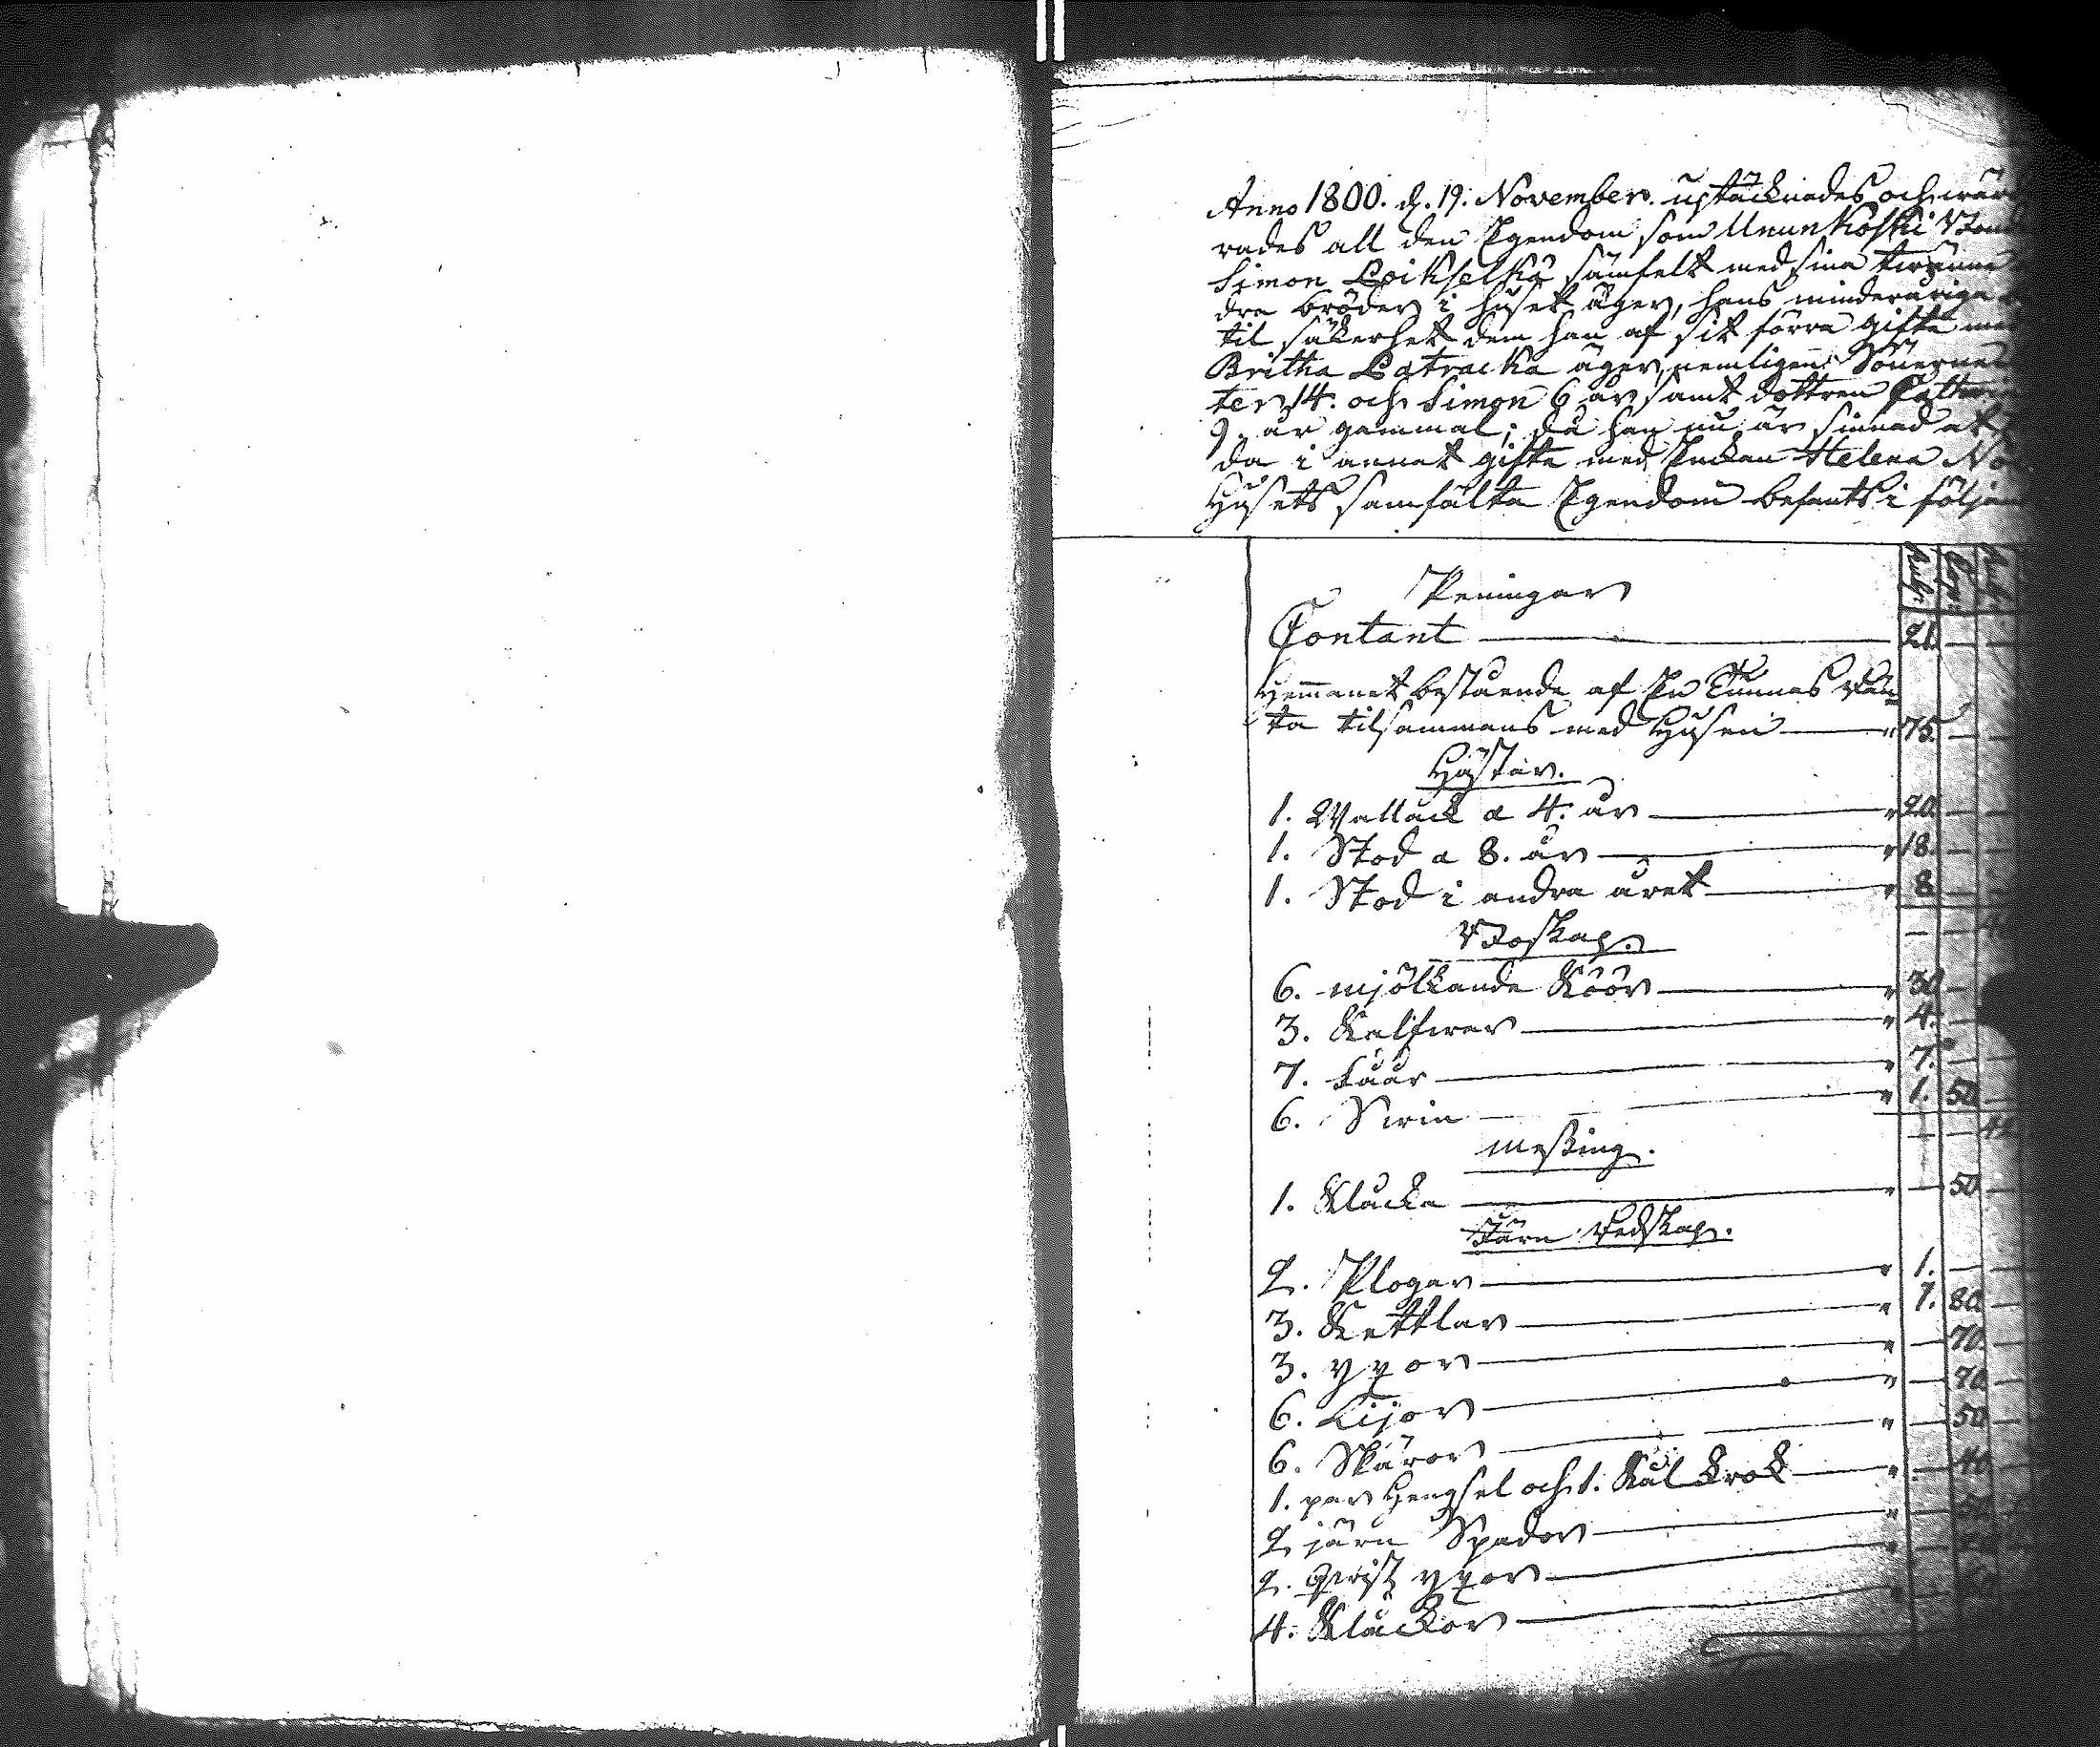 Anno 1800. d. 19. November. uptäcknades och wär
rades all den Egendom som Ununkoski Bond
Simon Loikselkå samfelt med sina twänne
dra bröder i huset äger, hans minderåriga
til säkerhet dem han af sit förra gifte med
Britha Latracka äger, nemligen Sönerne
ter 14. och Simon 6 år samt dottren Catharin
9. år gammal; då han nu är sinnad at
da i annat gifte med Enckan Helena No
Husets samfälta Egendom befants i följan
Rub: Cop: Rub:
Peningar
Contant 21.
Hemmanet bestående af En Tunnas Rän
ta tilsammans med Husen " 75.
Hästar.
1. Wallack a 4. år " 20.
1. Stod a 8. år " 18.
1. Stod i andra året " 8
Boskap.
6. mjölkande Kóór " 30
3. Kalfwar " 4.
7. Fåår " 7.
6. Swin " 1. 50
Messing.
1. Klåcka " 50.
Järn Redskap.
2. Plogar " 1.
3. Kettlar " 1. 80.
3. yxor " 70.
6. Lijor " 70.
6. Skäror " 50
1. par Hengsel och 1. Kål krok " 40
2. järn Spador " 50
2. qwist yxor "
4. Klåckor "